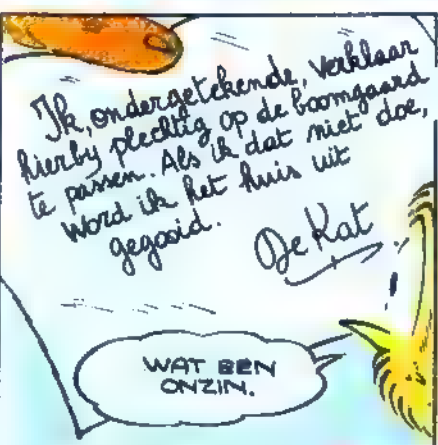 Ik, ondergetekende, verklaar
hierby plechtig op de boomgaard
te passen. Als ik dat niet doe,
word ik het huis uit
gegooid.
De Kat
WAT EEN
ONZIN.